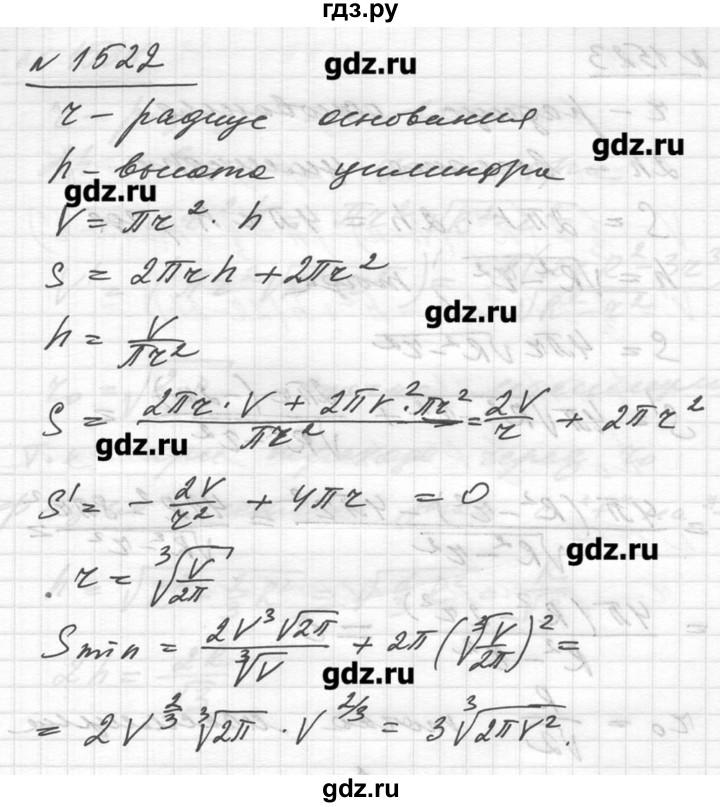 гдз.ру
№ 1522
gdz.ru
r – радиус основания
gdz.ru
h – высота цилиндра
gdz.ru
V = πr² · h
S = 2πrh + 2πr²
gdz.ru
h = V/πr²
S = (2πr · V + 2πr² · πr²)/πr² = 2V/r + 2πr²
gdz.ru
S' = – 2V/r² + 4πr = 0
gdz.ru
r = ³√(V/2π)
S min = 2V ³√2π / ³√V + 2π(³√(V/2π))² =
gdz.ru
= 2V^(2/3) ³√2π · V^(2/3) = 3 ³√(2πV²).
gdz.ru